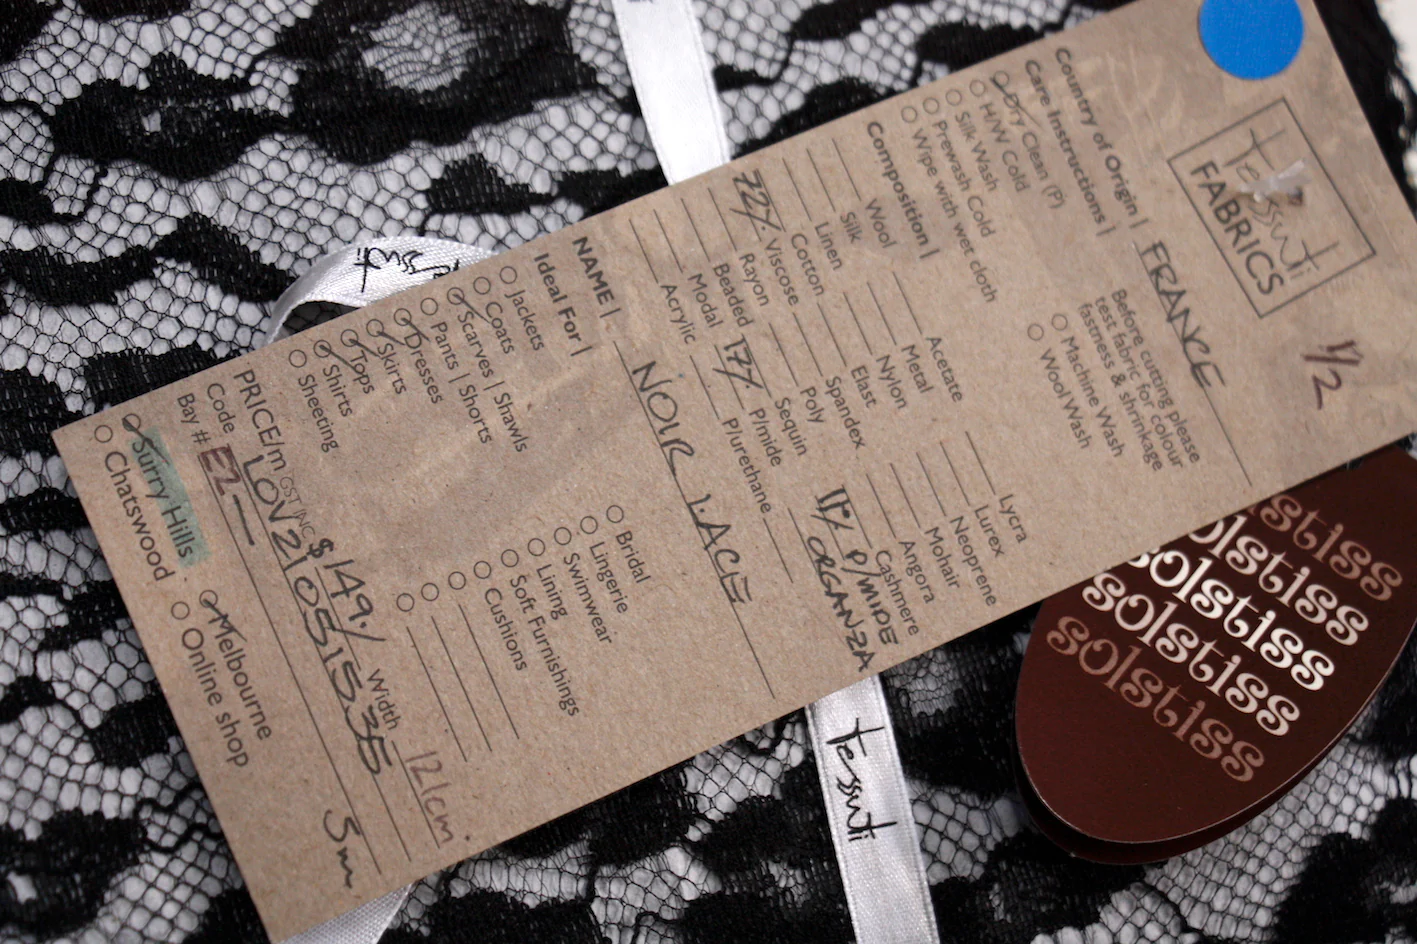 tessuti
FABRICS
1/2
Country of Origin | FRANCE
Care Instructions |
Dry Clean (P)
H/W Cold
Silk Wash
Prewash Cold
Wipe with wet cloth
Before cutting please
test fabric for colour
fastness & shrinkage
Machine Wash
Wool Wash
Composition |
Wool
Silk
Linen
Cotton
72% Viscose
Rayon
Beaded
Modal
Acrylic
Acetate
Metal
Nylon
Elast
Spandex
Poly
Sequin
17% P/mide
P/urethane
Lycra
Lurex
Neoprene
Mohair
Angora
Cashmere
11% P/MIDE
ORGANZA
NAME | NOIR LACE
Ideal For |
Jackets
Coats
Scarves | Shawls
Pants | Shorts
Dresses
Skirts
Tops
Shirts
Sheeting
Bridal
Lingerie
Swimwear
Lining
Soft Furnishings
Cushions
PRICE/m GST INC $149./ Width 121cm
Code LOV21051535
Bay # E2 — 5m
Surry Hills
Chatswood
Melbourne
Online shop
tessuti
tessuti
solstiss
solstiss
solstiss
solstiss